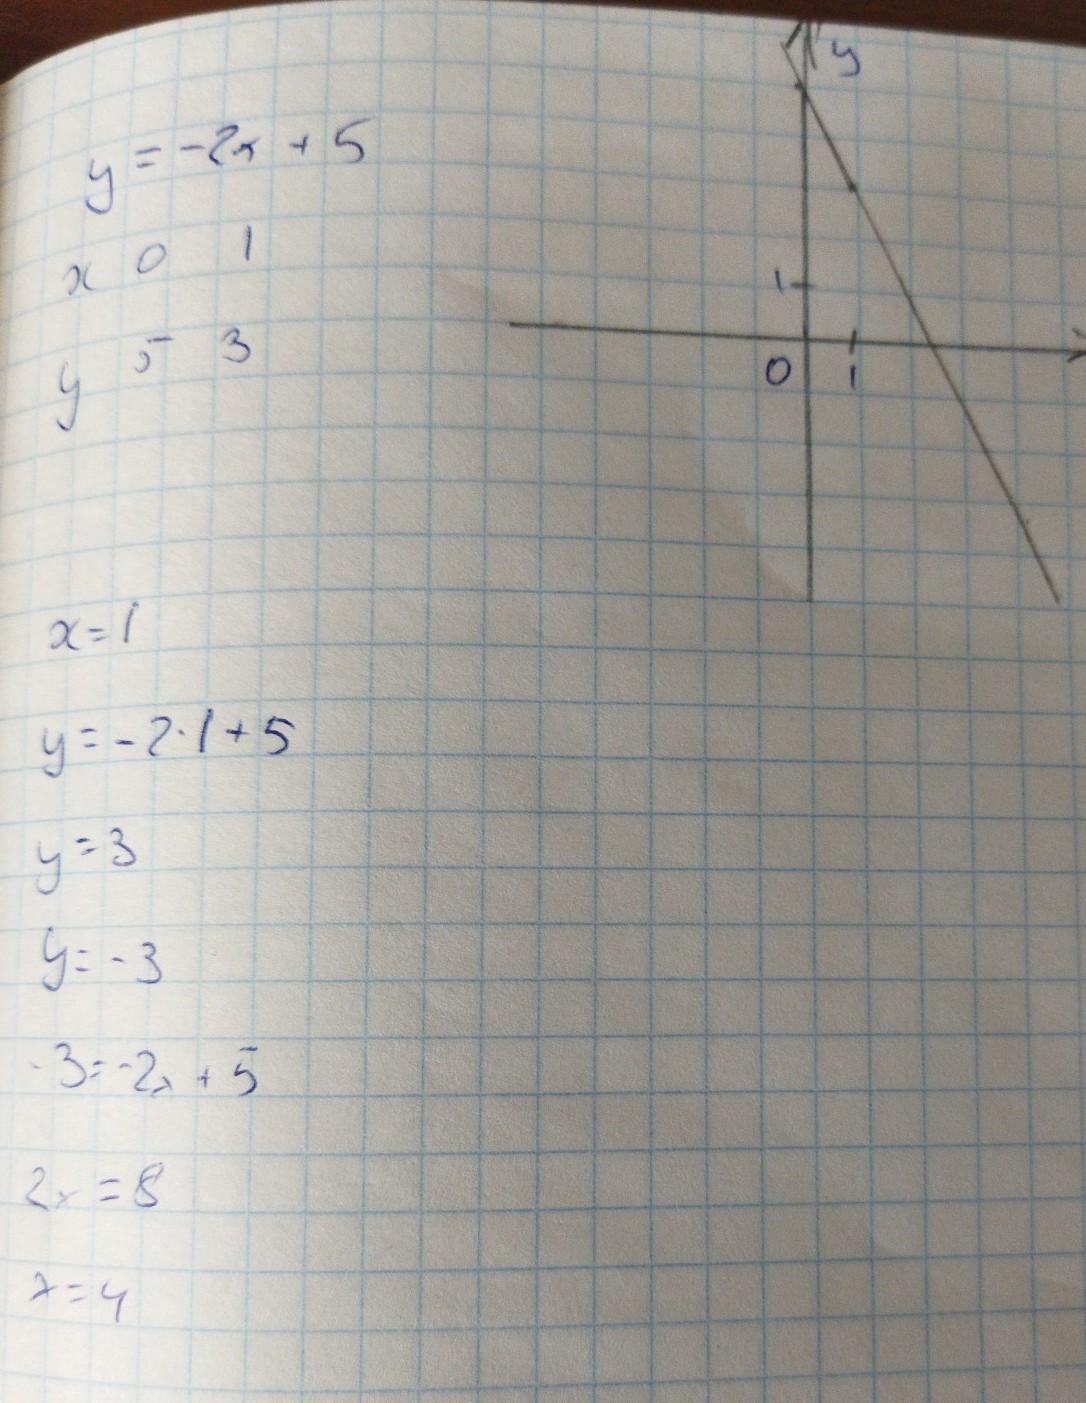 y = -2x + 5
x 0 1
y 5 3
x = 1
y = -2·1 + 5
y = 3
y = -3
-3 = -2x + 5
2x = 8
x = 4
y
1
0 1